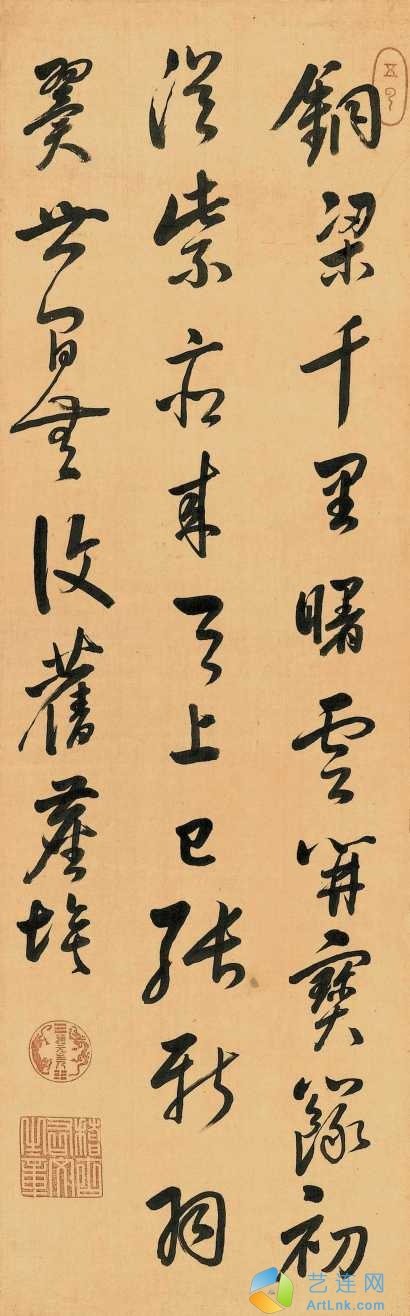 銅梁千里曙雲開寶籙初
從紫府來天上已張新羽
翼世間無復舊塵埃
稽古右文之章
艺连网
ArtLnk.Com